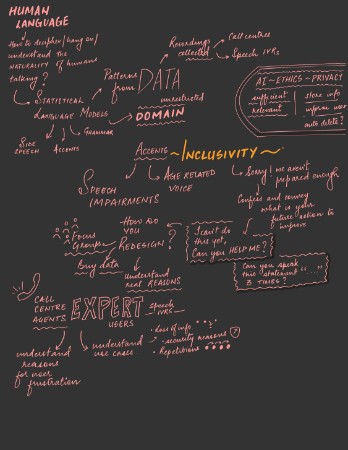 HUMAN
LANGUAGE
How to decipher/hang on/
understand the
NATURALITY of humans
talking?
STATISTICAL
LANGUAGE MODELS
Side
SPEECH
Accents
Grammar
Patterns
from DATA
unrestricted
DOMAIN
Recordings
collected
Call centres
Speech IVRs
AI ~ ETHICS ~ PRIVACY
sufficient
relevant
store info
inform user
auto delete?
ACCENTS ~ INCLUSIVITY ~
SPEECH
IMPAIRMENTS
AGE RELATED
VOICE
Sorry! we aren't
prepared enough
Confess and convey
what is your
future action to
improve
I can't do
this yet,
Can you HELP ME?
Can you speak
this statement "...."
3 TIMES?
HOW DO
YOU
REDESIGN?
Focus
Groups
Buy data
understand
real REASONS
CALL
CENTRE
AGENTS
EXPERT
USERS
speech
IVRs
understand
reasons
for user
frustration
understand
use cases
• Loss of info
• security reasons
• Repetitions